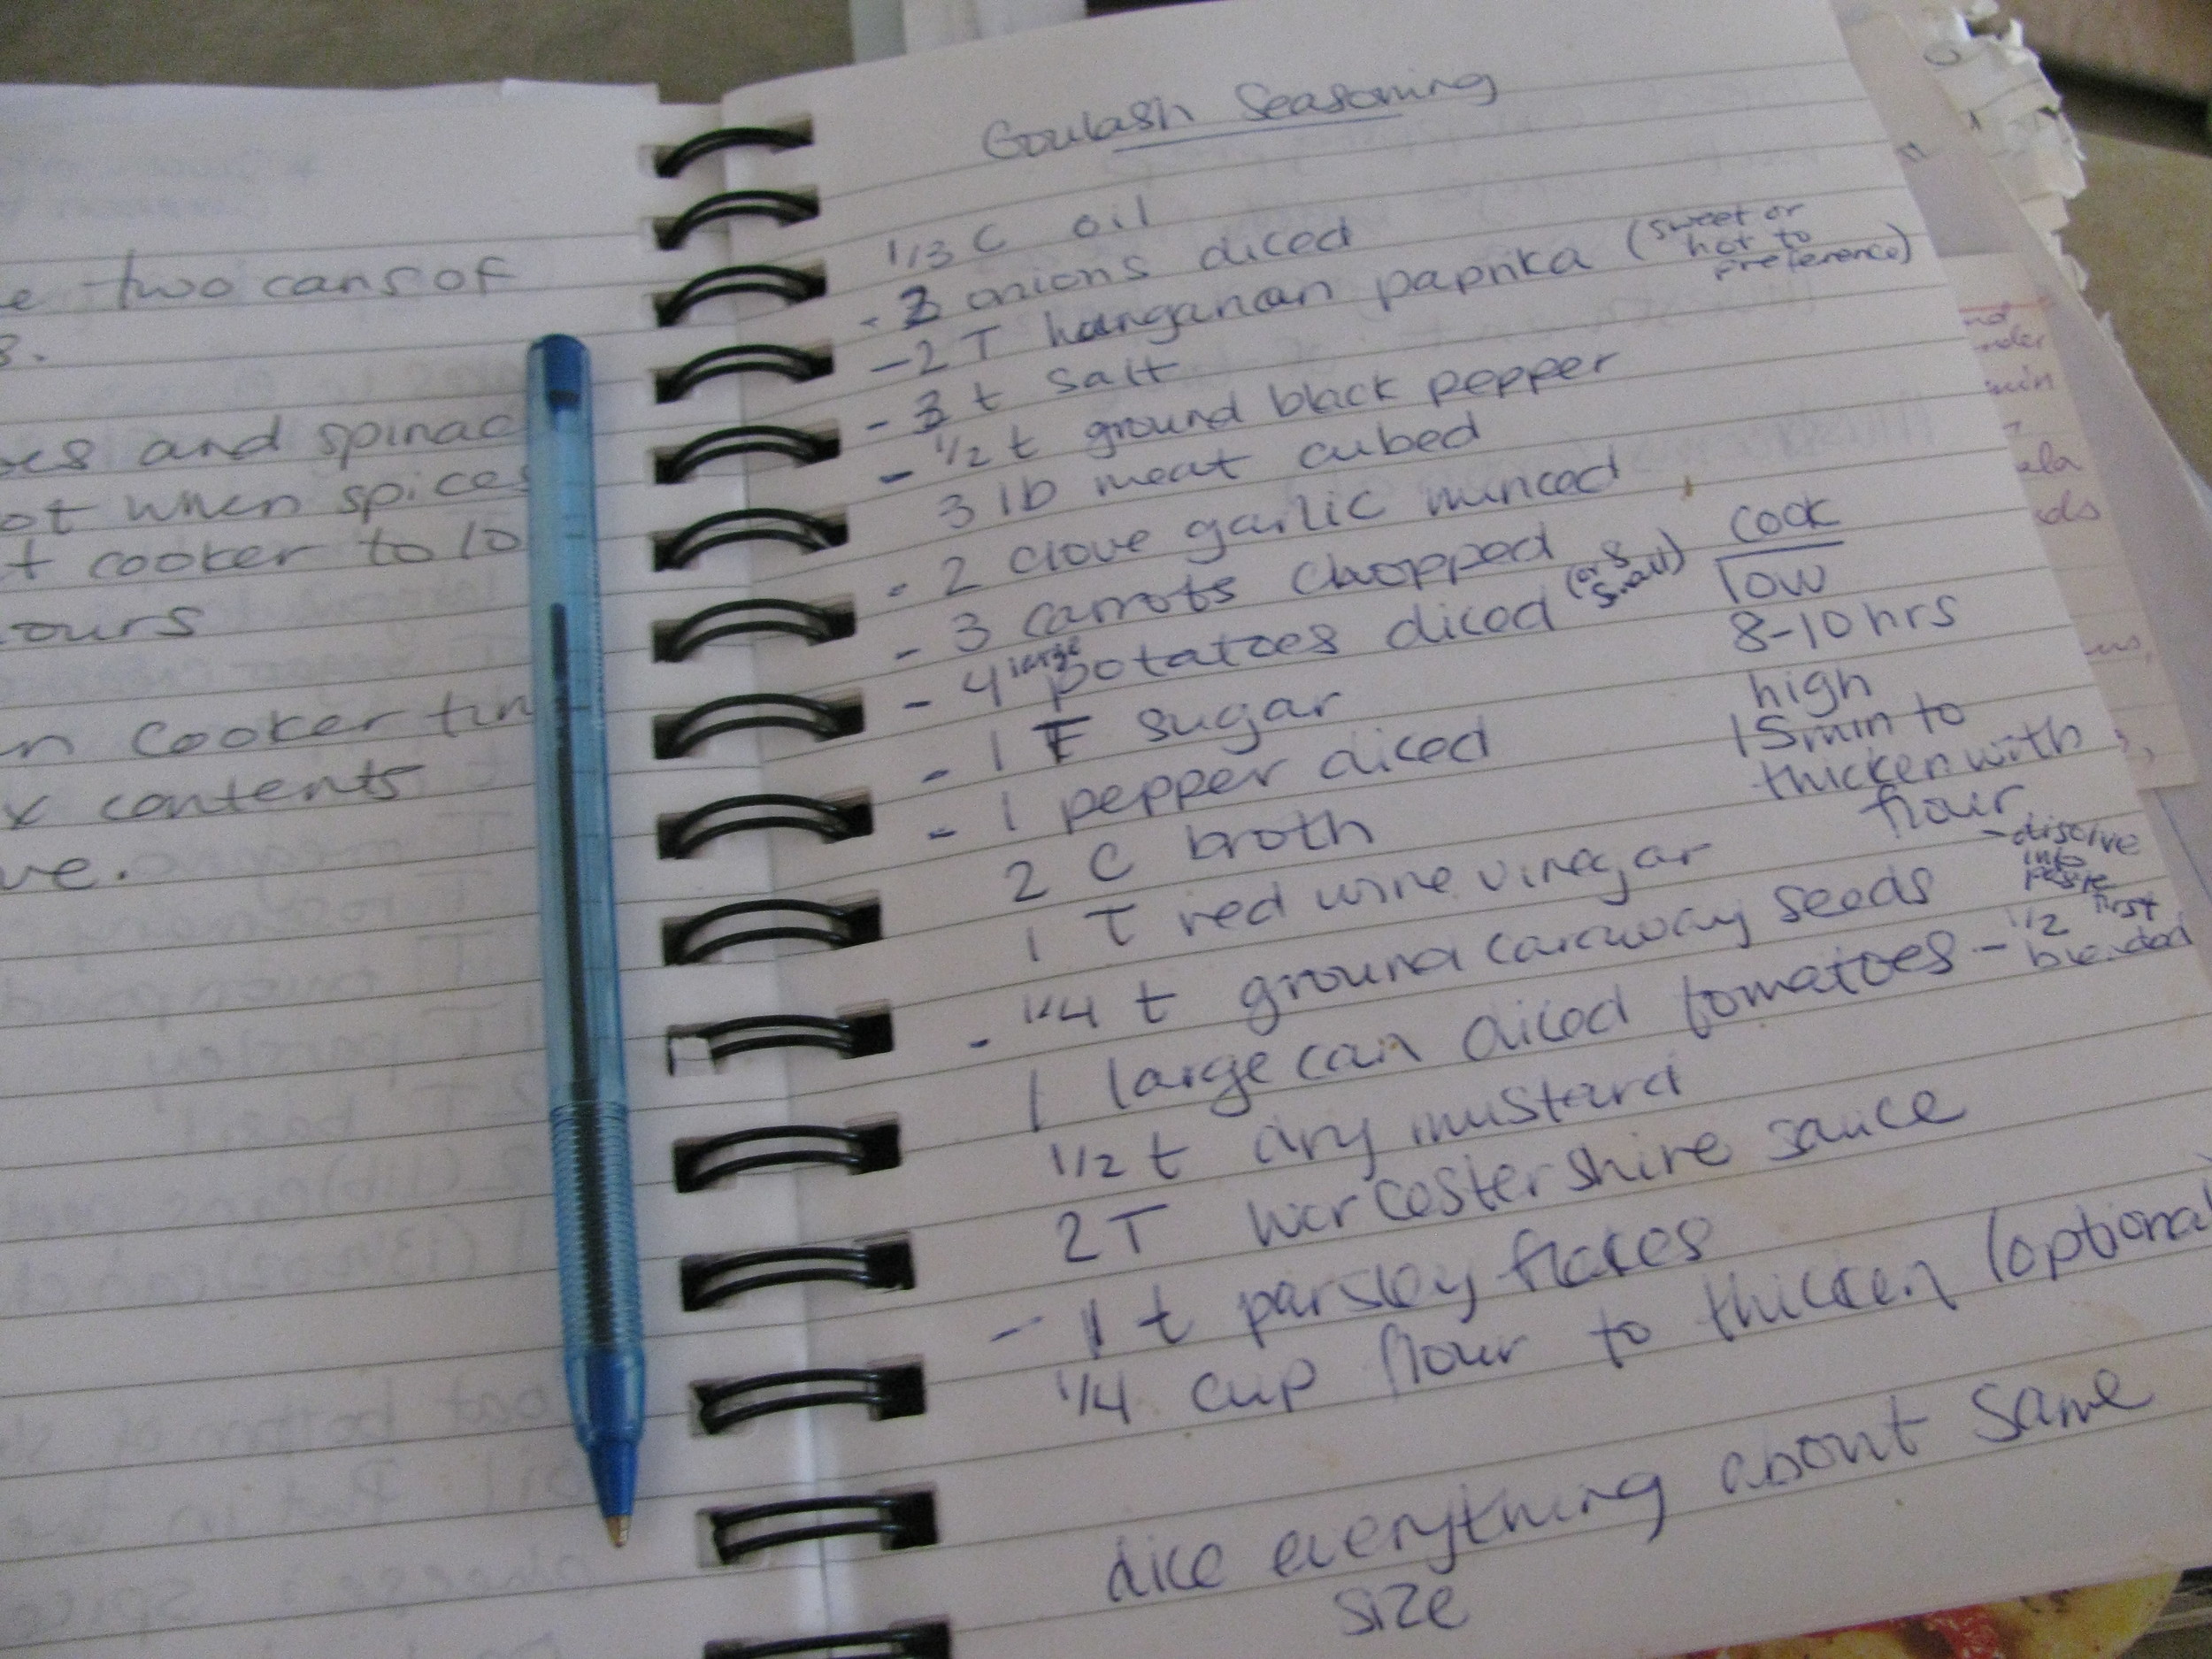 two cans of
and spinac
ot when spices
t cooker to 10
ours
n cooker
x contents
ve.
Goulash Seasoning
1/3 C oil
- 3 onions diced
- 2 T hunganan paprika (sweet or hot to preference)
- 3 t salt
- 1/2 t ground black pepper
3 lb meat cubed
- 2 clove garlic minced
- 3 carrots chopped
- 4 large potatoes diced (or 8 small)
- 1 T sugar
- 1 pepper diced
2 C broth
1 T red wine vinegar
- 1/4 t ground caraway seeds
1 large can diced tomatoes - 1/2 blended
1/2 t dry mustard
2 T worcestershire sauce
- 1 t parsley flakes
1/4 cup flour to thicken (optional)
dice everything about same
size
cook
low
8-10 hrs
high
15 min to
thicken with
flour
- disolve
into
paste
first